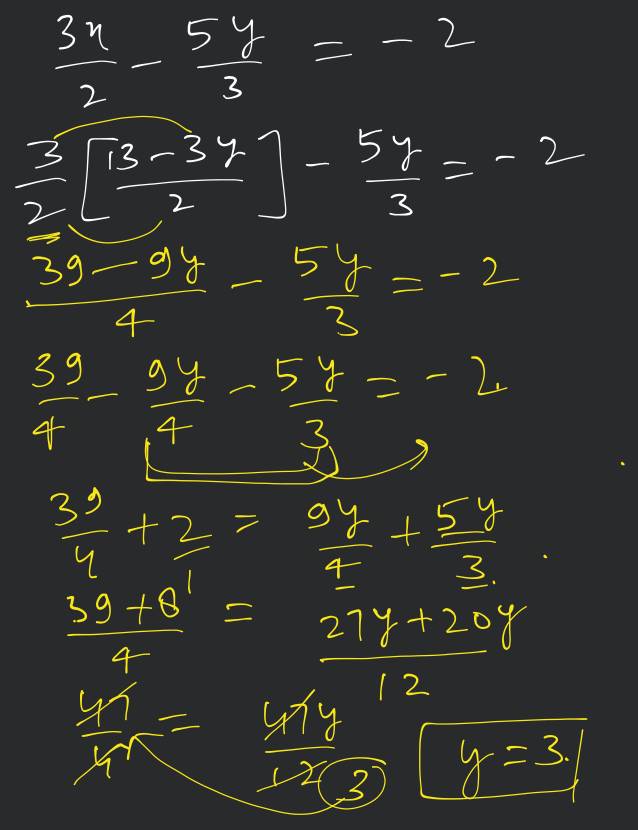 3x/2 - 5y/3 = -2
3/2 [13-3y/2] - 5y/3 = -2
39-9y/4 - 5y/3 = -2
39/4 - 9y/4 - 5y/3 = -2
39/4 + 2/1 = 9y/4 + 5y/3
39+8/4 = 27y+20y/12
47/4 = 47y/12 3 y=3.